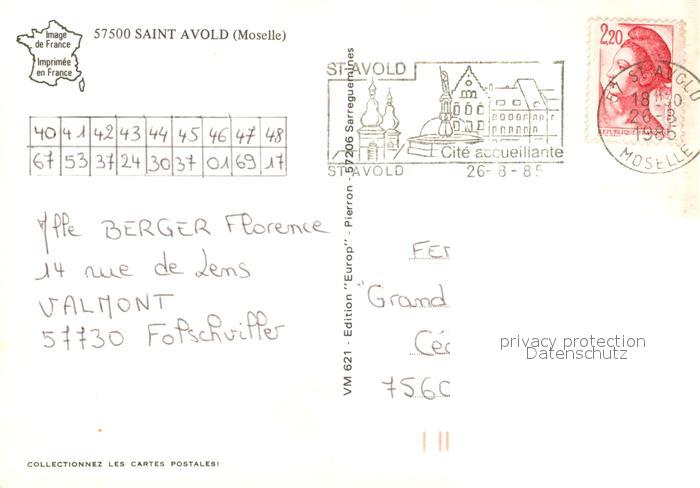 Image
de France
Imprimée
en France
57500 SAINT AVOLD (Moselle)
40 41 42 43 44 45 46 47 48
67 53 37 24 30 37 01 69 17
ST-AVOLD
Cité accueillante
ST-AVOLD 26-8-85
2,20
REPUBLIQUE FRANÇAISE
57 ST-AVOLD
18H30
26-8
1985
MOSELLE
VM 621 - Edition "Europ" - Pierron - 57206 Sarreguemines
Mlle BERGER Florence
14 rue de Lens
VALMONT
57730 Folschviller
FE
"Grand
Céc
7560
privacy protection
Datenschutz
COLLECTIONNEZ LES CARTES POSTALES!